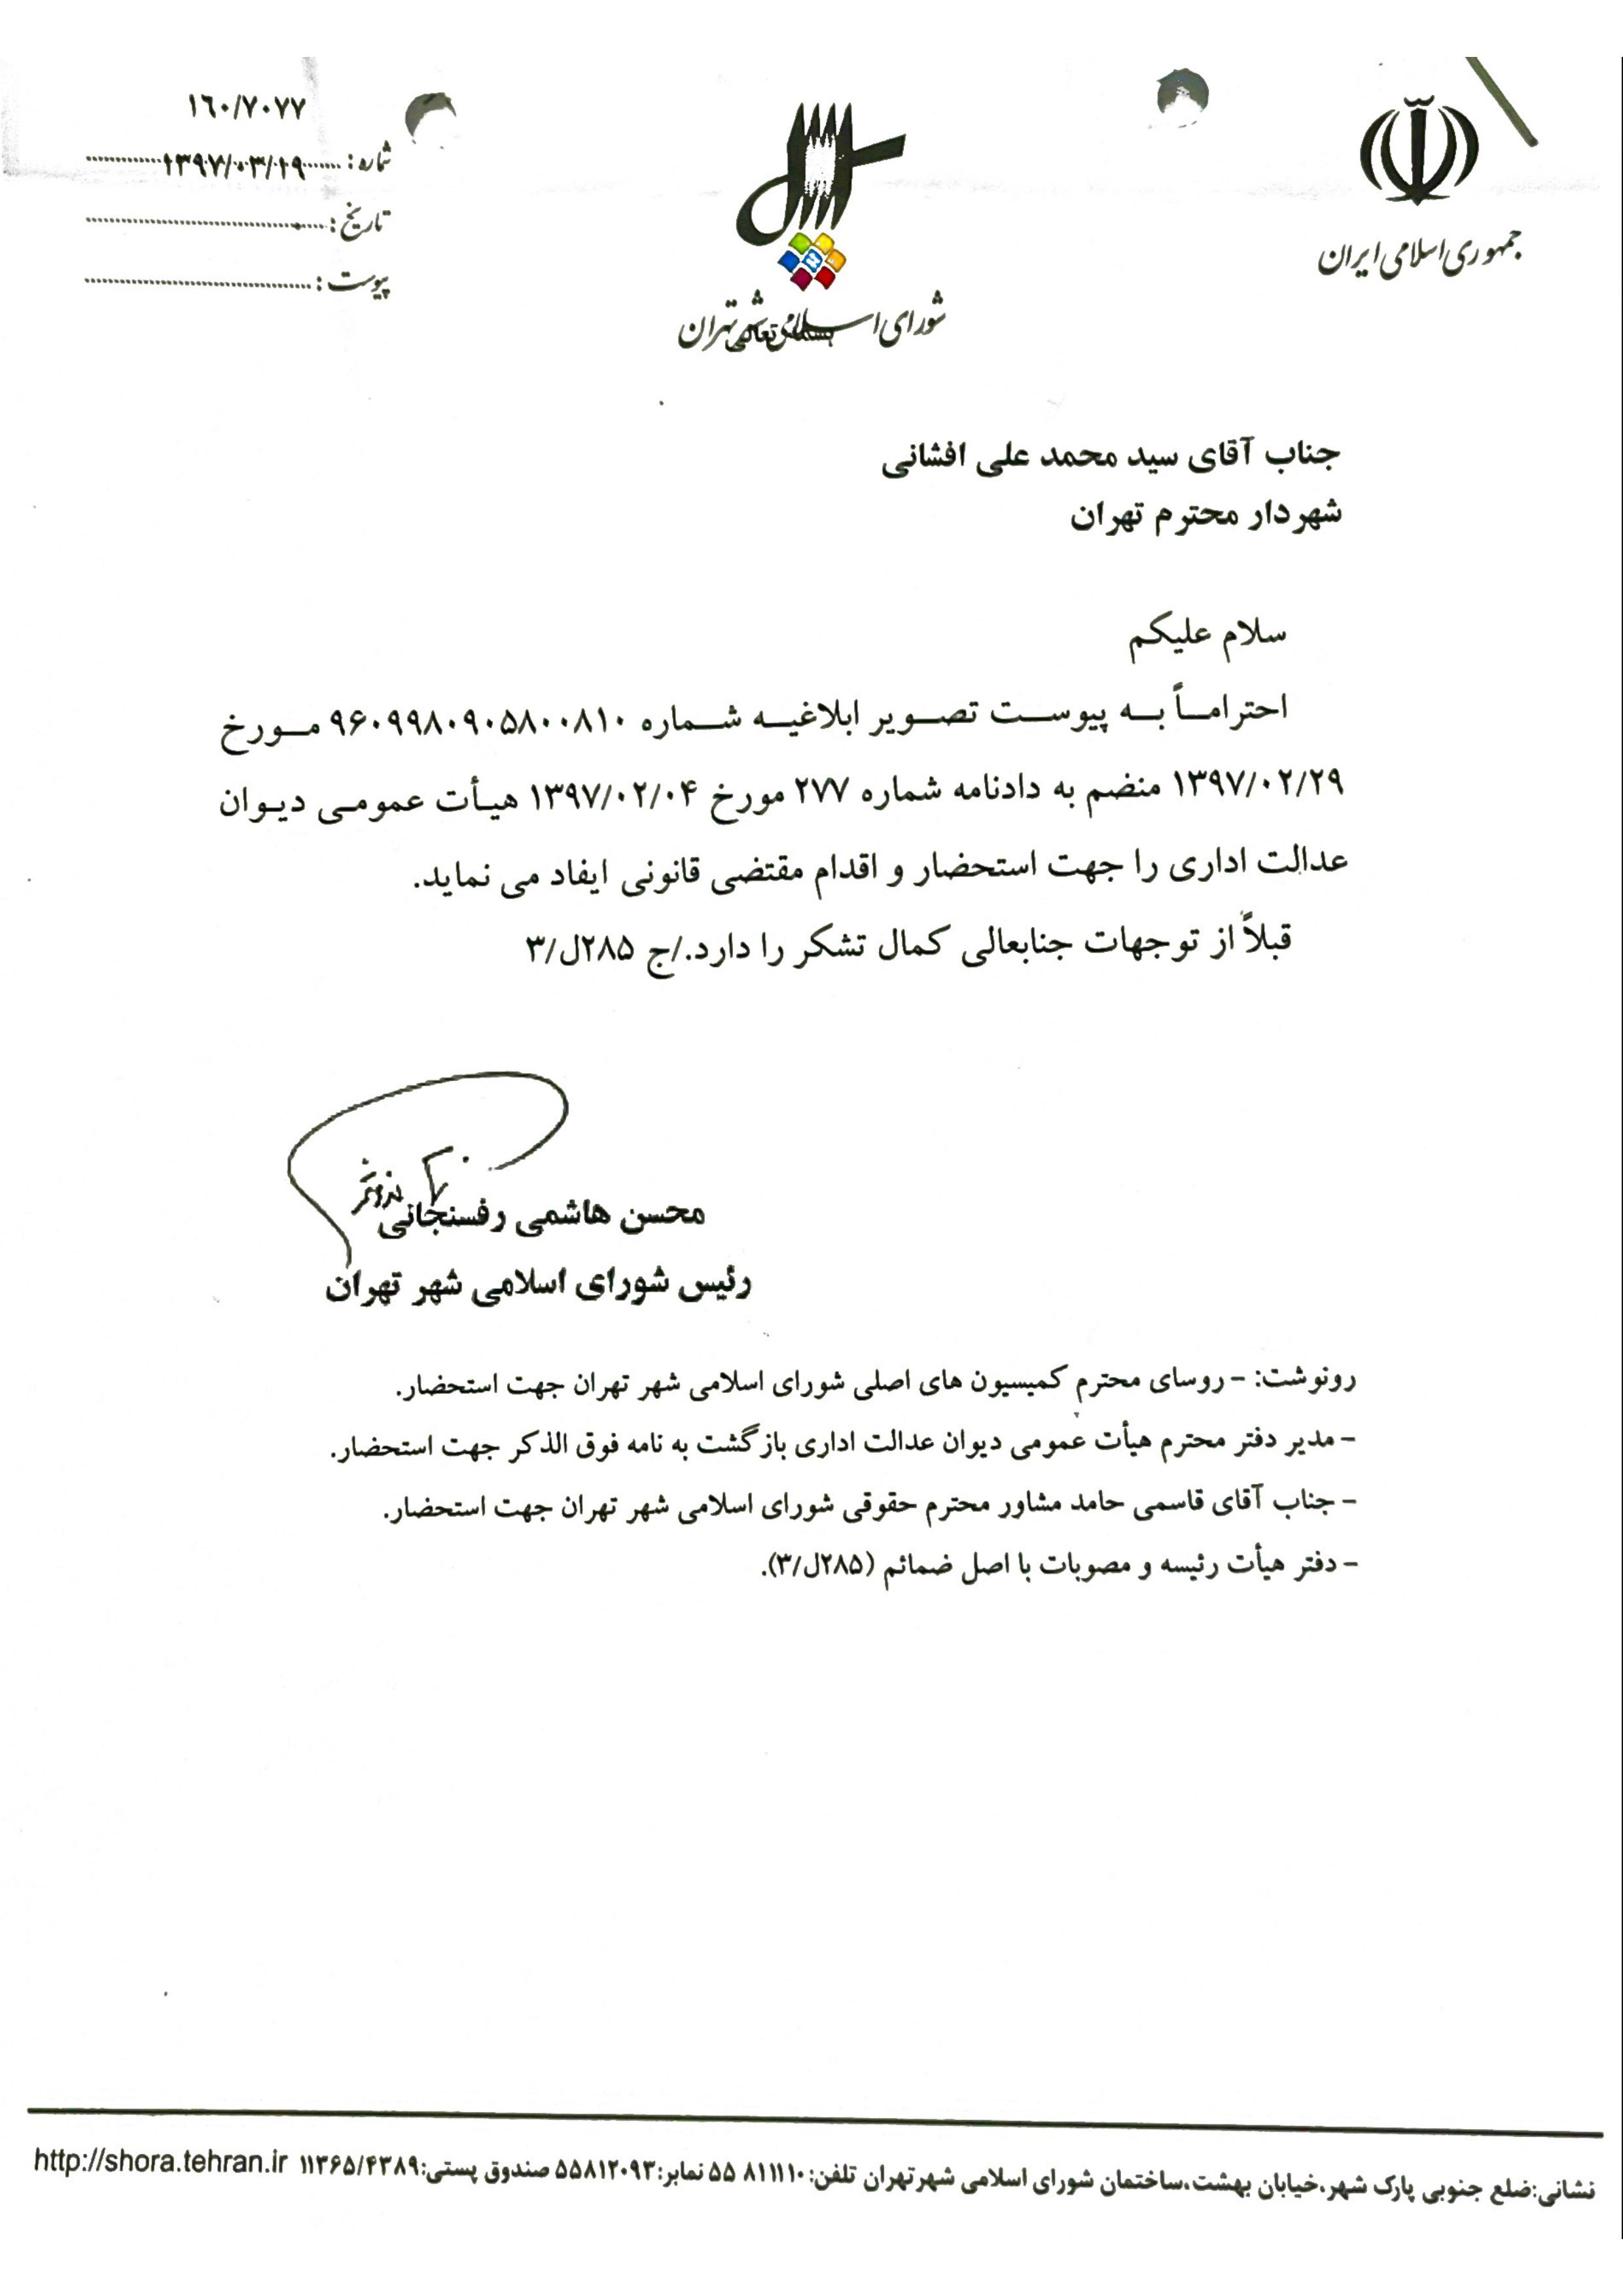 جمهوری اسلامی ایران
شورای اسلامی شهر تهران
بسمه تعالی
۱۶۰/۷۰۷۷
شماره: ۱۳۹۷/۰۳/۱۹
تاریخ:
پیوست:
جناب آقای سید محمد علی افشانی
شهردار محترم تهران
سلام علیکم
احتراماً به پیوست تصویر ابلاغیه شماره ۹۶۰۹۹۸۰۹۰۵۸۰۰۸۱۰ مورخ
۱۳۹۷/۰۲/۲۹ منضم به دادنامه شماره ۲۷۷ مورخ ۱۳۹۷/۰۲/۰۴ هیأت عمومی دیوان
عدالت اداری را جهت استحضار و اقدام مقتضی قانونی ایفاد می نماید.
قبلاً از توجهات جنابعالی کمال تشکر را دارد./ج ۲۸۵ل/۳
محسن هاشمی رفسنجانی
رئیس شورای اسلامی شهر تهران
رونوشت: - روسای محترم کمیسیون های اصلی شورای اسلامی شهر تهران جهت استحضار.
- مدیر دفتر محترم هیأت عمومی دیوان عدالت اداری بازگشت به نامه فوق الذکر جهت استحضار.
- جناب آقای قاسمی حامد مشاور محترم حقوقی شورای اسلامی شهر تهران جهت استحضار.
- دفتر هیأت رئیسه و مصوبات با اصل ضمائم (۲۸۵ل/۳).
نشانی:ضلع جنوبی پارک شهر،خیابان بهشت،ساختمان شورای اسلامی شهرتهران تلفن: ۸۱۱۱۱۰ ۵۵ نمابر:۵۵۸۱۲۰۹۳ صندوق پستی:۱۱۳۶۵/۴۳۸۹ http://shora.tehran.ir